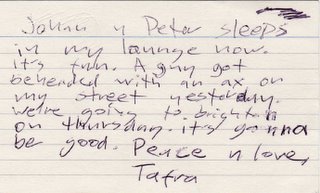 Johan n Peter sleeps
in my lounge now.
it's fun. A guy got
beheaded with an ax on
my street yesterday.
we're going to brighton
on thursday. it's gonna
be good. Peace n love,
Tafra